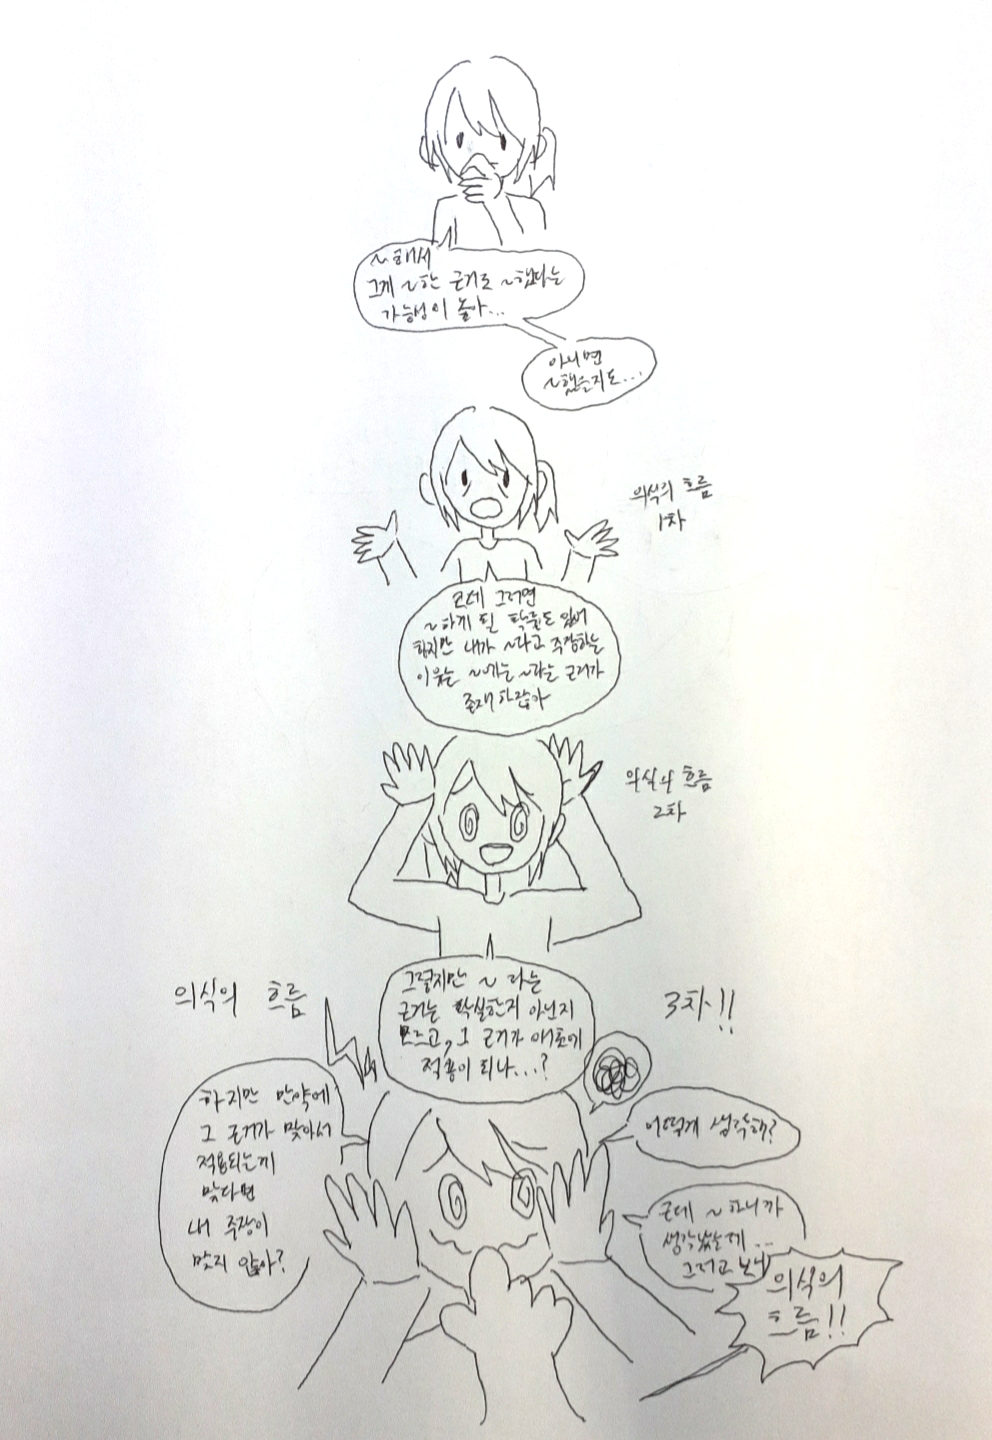 ~해서
그게 ~한 근거로 ~했다는
가능성이 높아...
아니면
~했을지도...
의식의 흐름
1차
근데 그러면
~하게 될 확률도 있어
하지만 내가 ~라고 주장하는
이유는 ~에는 ~라는 근거가
존재하잖아
의식의 흐름
2차
그렇지만 ~ 라는
근거는 확실한지 아닌지
모르고, 그 근거가 애초에
적용이 되나...?
의식의 흐름
3차!!
하지만 만약에
그 근거가 맞아서
적용되는게
맞다면
내 주장이
맞지 않아?
어떻게 생각해?
근데 ~하니까
생각났는데...
그러고 보니
의식의
흐름!!